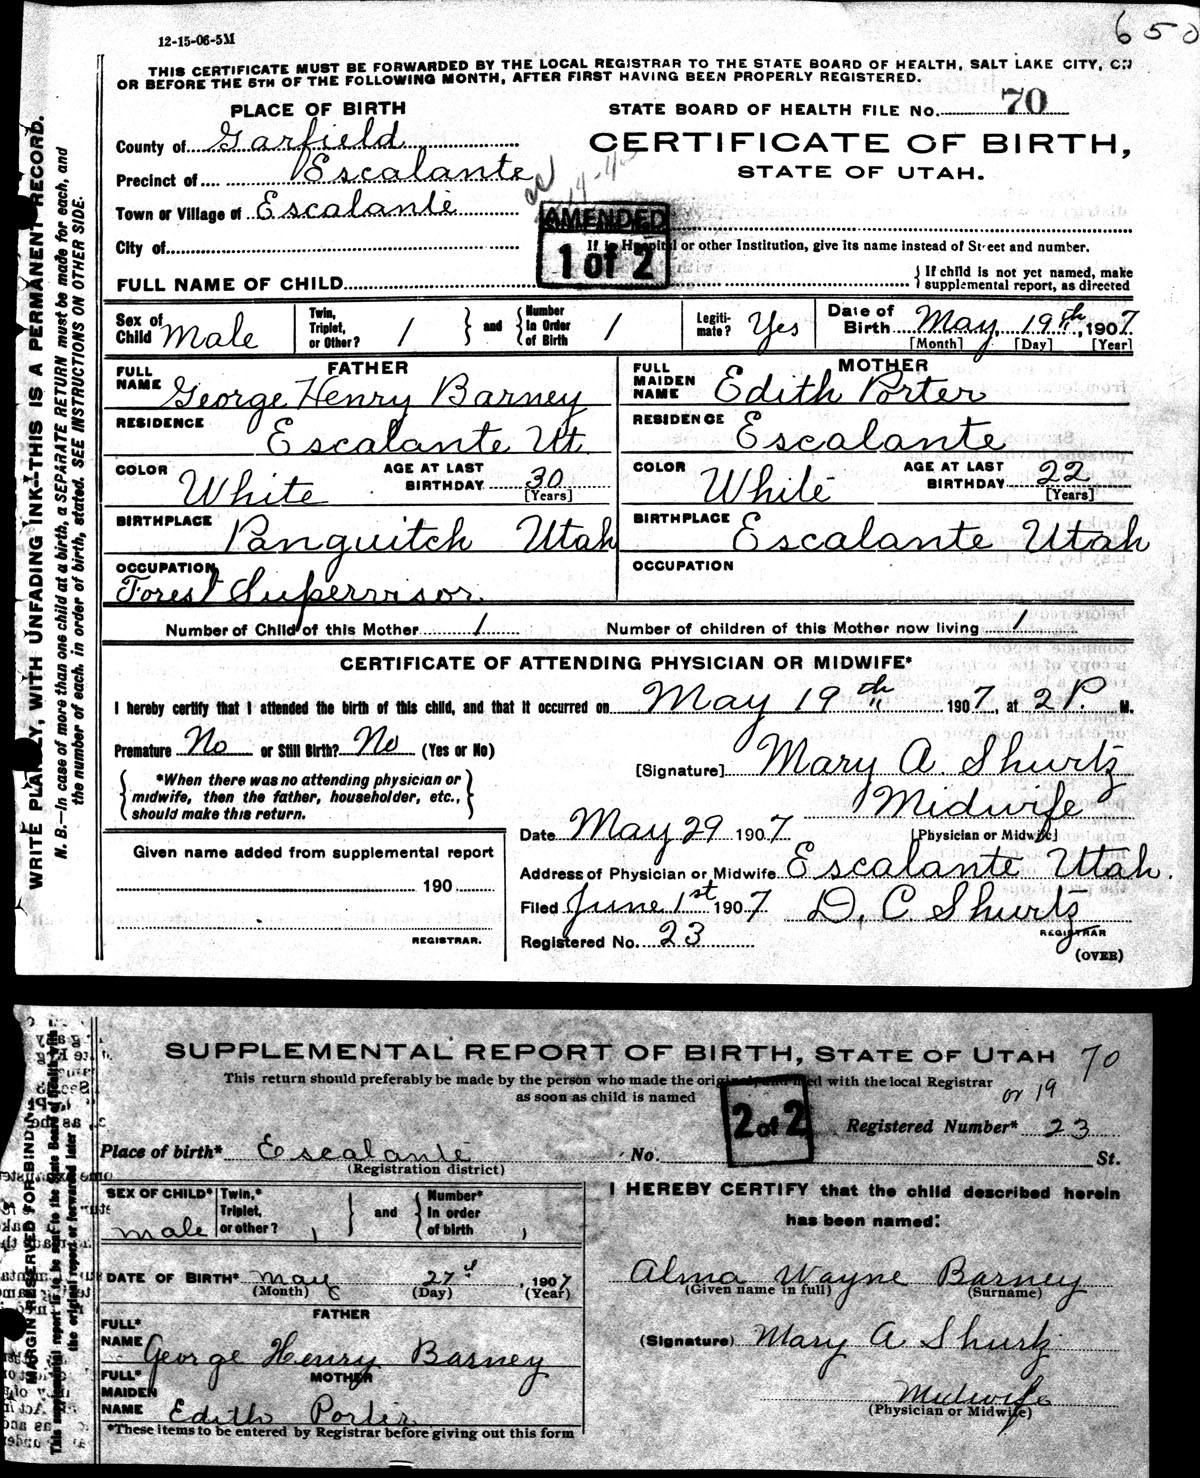 650
12-15-06-5M
THIS CERTIFICATE MUST BE FORWARDED BY THE LOCAL REGISTRAR TO THE STATE BOARD OF HEALTH, SALT LAKE CITY, ON
OR BEFORE THE 5TH OF THE FOLLOWING MONTH, AFTER FIRST HAVING BEEN PROPERLY REGISTERED.
WRITE PLAINLY, WITH UNFADING INK—THIS IS A PERMANENT RECORD.
N. B.—In case of more than one child at a birth, a SEPARATE RETURN must be made for each, and
the number of each, in order of birth, stated. SEE INSTRUCTIONS ON OTHER SIDE.
PLACE OF BIRTH
County of Garfield
Precinct of Escalante
Town or Village of Escalante
City of
STATE BOARD OF HEALTH FILE No. 70
CERTIFICATE OF BIRTH,
STATE OF UTAH.
AMENDED
1 of 2
If in Hospital or other Institution, give its name instead of Street and number.
FULL NAME OF CHILD
If child is not yet named, make
supplemental report, as directed
Sex of Child Male
Twin, Triplet, or Other? 1
and
Number In Order of Birth 1
Legitimate? Yes
Date of Birth May 19th, 1907
[Month] [Day] [Year]
FATHER
FULL NAME George Henry Barney
RESIDENCE Escalante Ut.
COLOR White
AGE AT LAST BIRTHDAY 30 [Years]
BIRTHPLACE Panguitch Utah
OCCUPATION Forest Supervisor.
MOTHER
FULL MAIDEN NAME Edith Porter
RESIDENCE Escalante
COLOR White
AGE AT LAST BIRTHDAY 22 [Years]
BIRTHPLACE Escalante Utah
OCCUPATION
Number of Child of this Mother 1
Number of children of this Mother now living 1
CERTIFICATE OF ATTENDING PHYSICIAN OR MIDWIFE*
I hereby certify that I attended the birth of this child, and that it occurred on May 19th 1907, at 2 P. M.
Premature No or Still Birth? No (Yes or No)
*When there was no attending physician or
midwife, then the father, householder, etc.,
should make this return.
[Signature] Mary A. Shurtz
Midwife
[Physician or Midwife]
Date May 29 1907
Address of Physician or Midwife Escalante Utah.
Filed June 1st 1907 D. C. Shurtz
REGISTRAR
Registered No. 23
(OVER)
Given name added from supplemental report
190
REGISTRAR.
SUPPLEMENTAL REPORT OF BIRTH, STATE OF UTAH 70
This return should preferably be made by the person who made the original, and filed with the local Registrar
as soon as child is named
or 19
2 of 2
Registered Number* 23
Place of birth* Escalante No. St.
(Registration district)
MARGIN RESERVED FOR BINDING
SEX OF CHILD* male
Twin,* Triplet, or other? 1
and
Number* In order of birth 1
DATE OF BIRTH* May 27th, 1907
(Month) (Day) (Year)
FATHER
FULL* NAME George Henry Barney
MOTHER
FULL* MAIDEN NAME Edith Porter
*These items to be entered by Registrar before giving out this form
I HEREBY CERTIFY that the child described herein
has been named:
Alma Wayne Barney
(Given name in full) (Surname)
(Signature) Mary A Shurtz
Midwife
(Physician or Midwife)